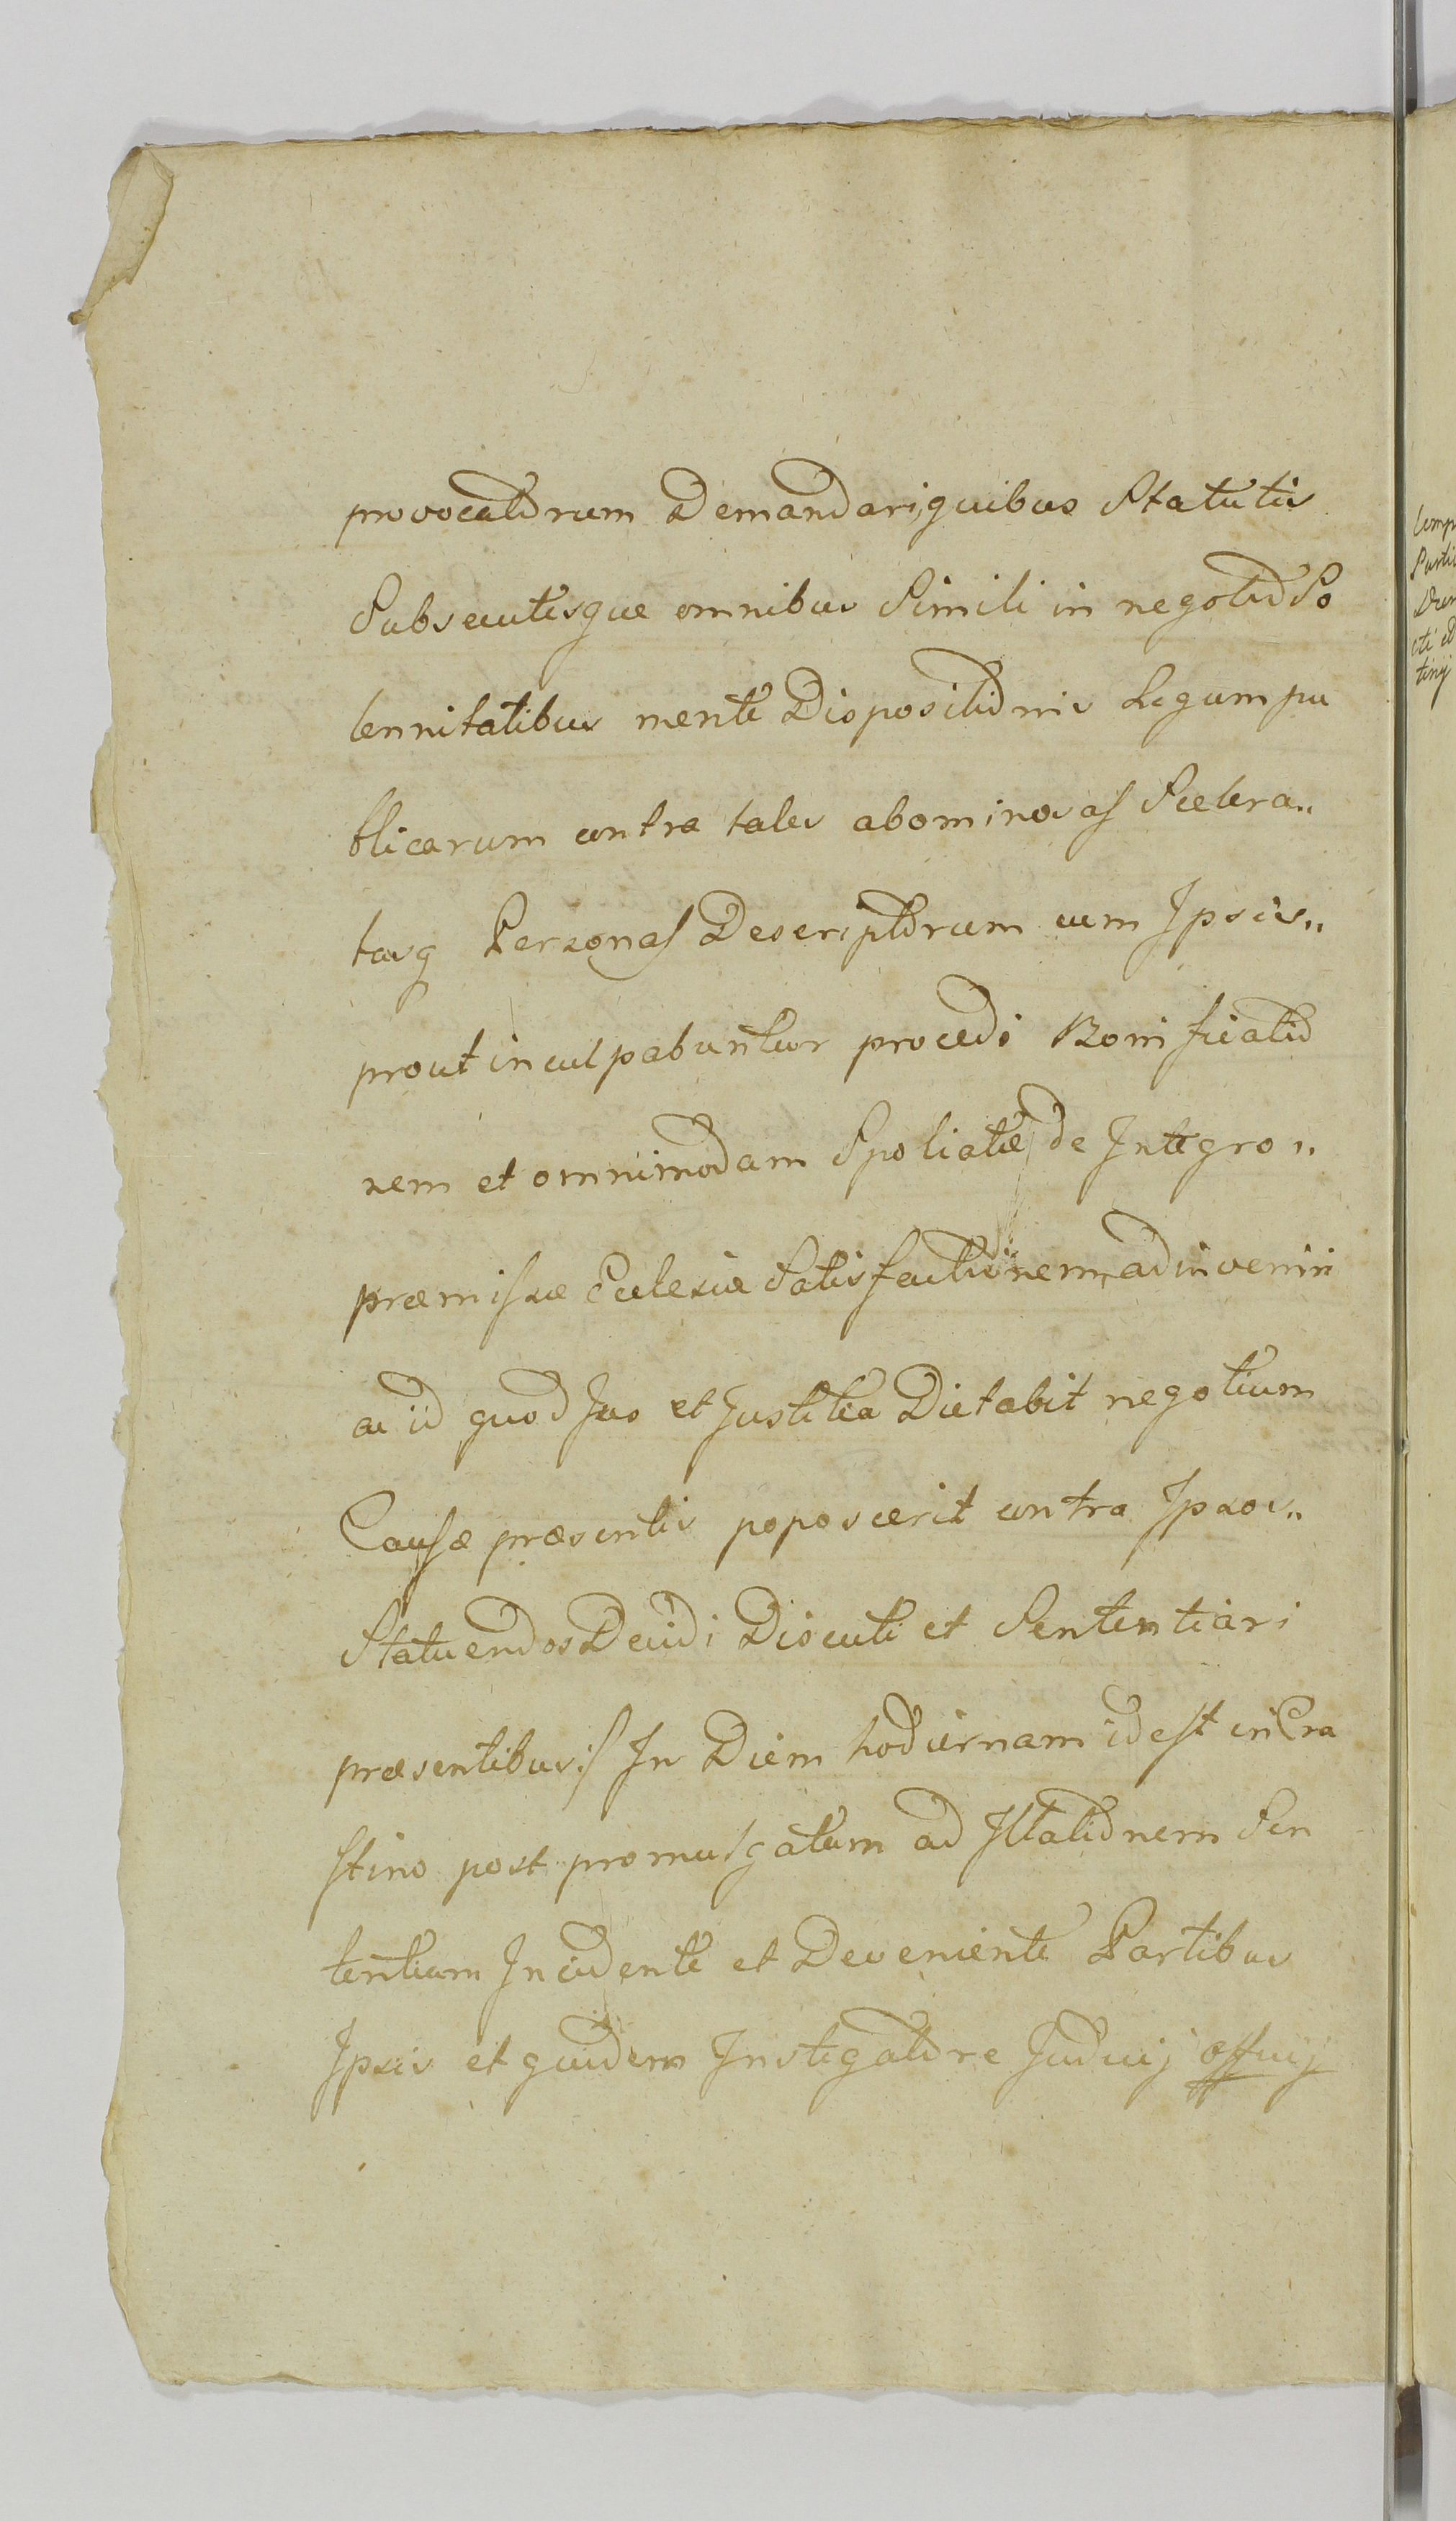 provocatorum Demandari, quibus Statutis
Subsecutisque omnibus Simili in negotio So
lennitatibus mente Dispositionis Legum pu
blicarum contra tales abominosas Scelera„
tasq Personas Descriptorum cum Ipsis„
prout inculpabuntur procedi Bonificatio
nem et omnimodam Spoliatæ de Integro„
præmissæ Ecclesiæ Satisfactionem, adinveniri
ac id quod Jus et Justitia Dictabit negotium
Causæ præsentis poposcerit contra Ipsos„
Statuendos Decidi Discuti et Sententiari
præsentibus:/ In Diem hodiernam id est in Cra
stino post promulgatum ad Illationem Sen
tentiam Incidente et Deveniente Partibus
Ipsis et quidem Instigatore Judicij officij
Comp
Parti
cti et
tinij